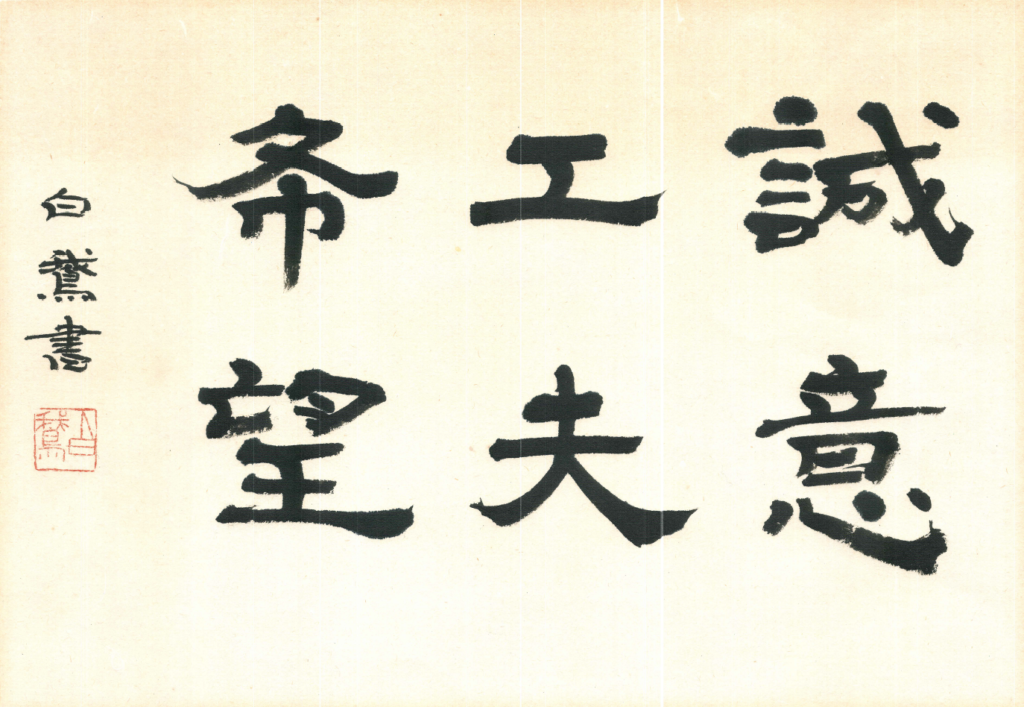 誠意
工夫
希望
白鵞書
白鵞